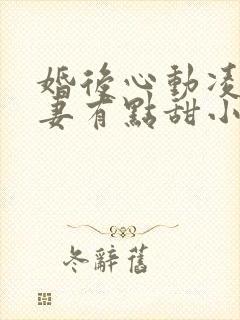 婚後心動凌
妻有點甜小
冬辭舊